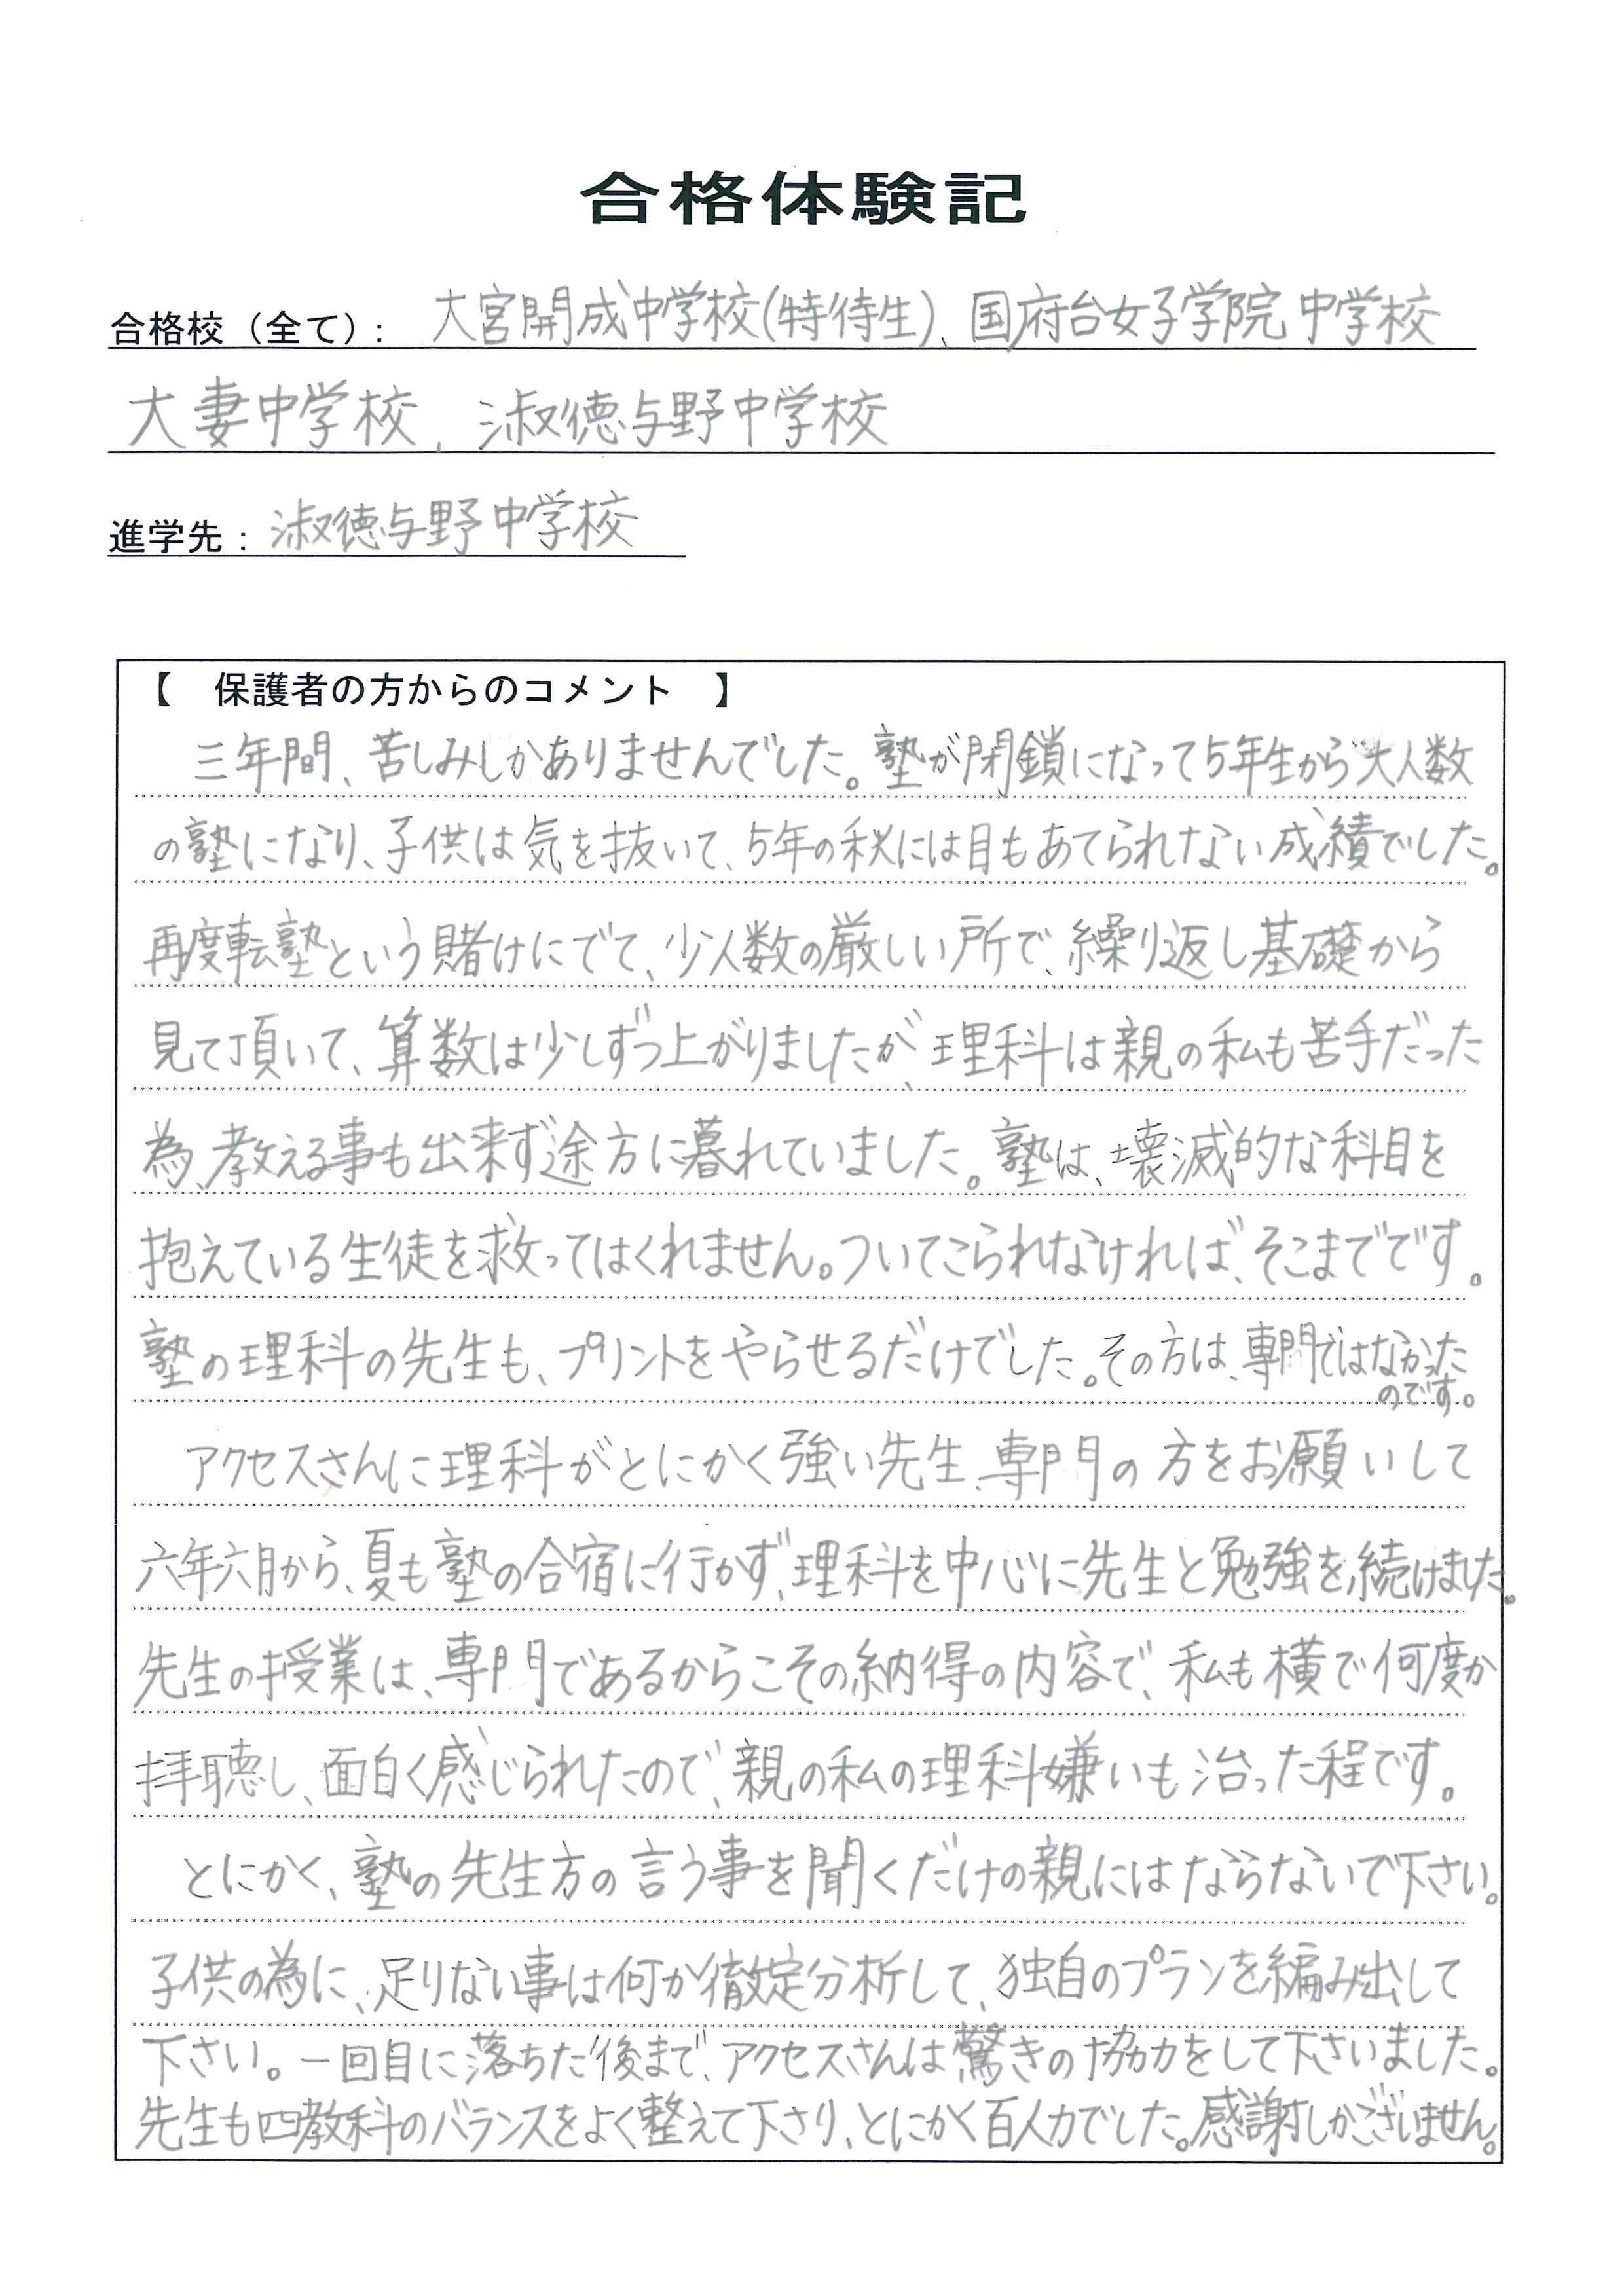 合格体験記
合格校（全て）: 大宮開成中学校(特待生)、国府台女子学院中学校
大妻中学校、淑徳与野中学校
進学先: 淑徳与野中学校
【　保護者の方からのコメント　】
三年間、苦しみしかありませんでした。塾が閉鎖になって5年生から大人数
の塾になり、子供は気を抜いて、5年の秋には目もあてられない成績でした。
再度転塾という賭けにでて、少人数の厳しい所で、繰り返し基礎から
見て頂いて、算数は少しずつ上がりましたが、理科は親の私も苦手だった
為、教える事も出来ず途方に暮れていました。塾は、壊滅的な科目を
抱えている生徒を救ってはくれません。ついてこられなければ、そこまでです。
塾の理科の先生も、プリントをやらせるだけでした。その方は、専門ではなかった
のです。
アクセスさんに理科がとにかく強い先生、専門の方をお願いして
六年六月から、夏も塾の合宿に行かず、理科を中心に先生と勉強を続けました。
先生の授業は、専門であるからこその納得の内容で、私も横で何度か
拝聴し、面白く感じられたので、親の私の理科嫌いも治った程です。
とにかく、塾の先生方の言う事を聞くだけの親にはならないで下さい。
子供の為に、足りない事は何か徹定分析して、独自のプランを編み出して
下さい。一回目に落ちた後まで、アクセスさんは驚きの協力をして下さいました。
先生も四教科のバランスをよく整えて下さり、とにかく百人力でした。感謝しかございません。